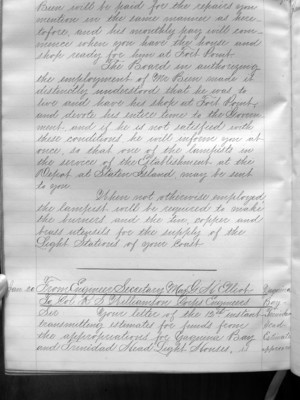 Bien will be paid for the repairs you
mention in the same manner as here
tofore, and his monthly pay will com
mence when you have the house and
shop ready for him at Fort Point.
The Board in authorizing
the employment of Mr Bien made it
distinctly understood that he was to
live and have his shop at Fort Point,
and devote his entire time to the Govern
ment, and if he is not satisfied with
these conditions he will inform you at
once, so that one of the lampists in
the service of the Establishment at the
Depot at Staten Island may be sent
to you.
When not otherwise employed
the lampist will be required to make
the burners and the tin, copper and
brass utensils for the supply of the
Light Stations of your Coast.
From Engineer Secretary Maj. G. H. Elliot
To Col. R. S. Williamson Corps Engineers
Sir Your letter of the 13th instant
transmitting estimates for funds from
the appropriations for Yaquina Bay
and Trinidad Head Light Houses, is
Yaquina
Bay
Trinidad
Head